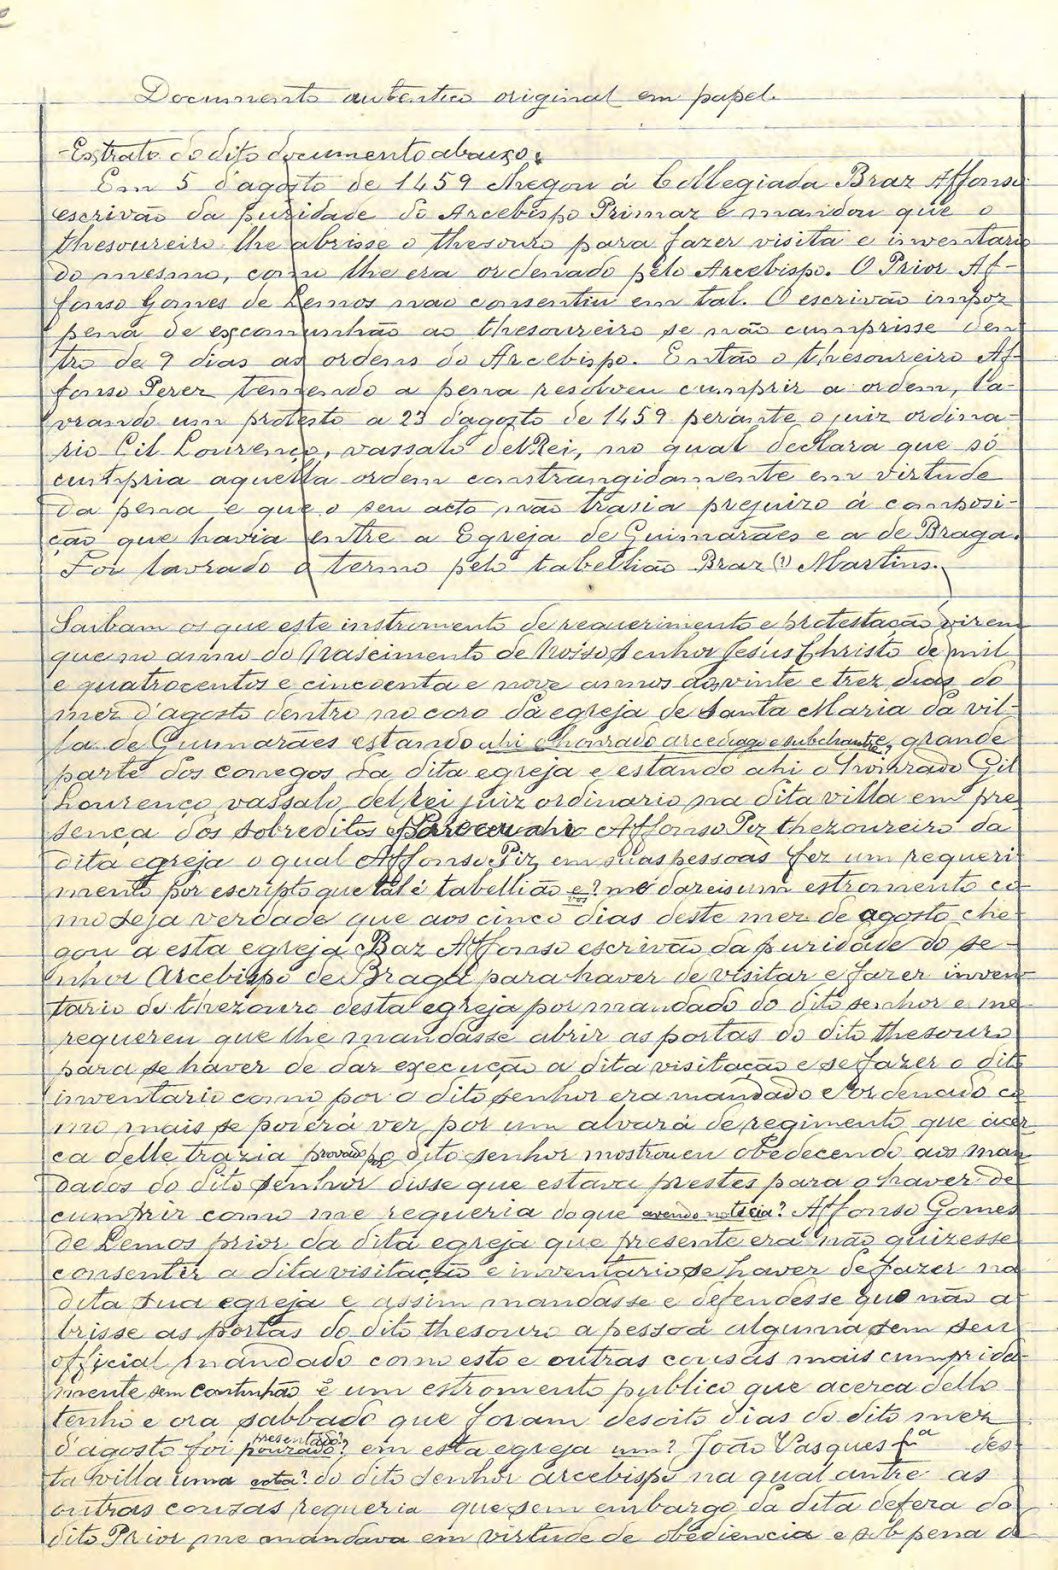 Documento autentico original em papel.
Extrato do dito documento abaixo.
Em 5 d'agosto de 1459 chegou á Collegiada Braz Affonso
escrivão da puridade do Arcebispo Primaz e mandou que o
thesoureiro lhe abrisse o thesouro para fazer visita e inventario
do mesmo, como lhe era ordenado pelo Arcebispo. O Prior Af-
fonso Gomes de Lemos nao consentiu em tal. O escrivão impoz
pena de excomunhão ao thesoureiro se não cumprisse den
tro de 9 dias as ordens do Arcebispo. Então o thesoureiro Af-
fonso Perez temendo a pena resolveu cumprir a ordem, la-
vrando um protesto a 23 d'agosto de 1459 perante o juiz ordina-
rio Gil Lourenço, vassalo del Rei, no qual declara que só
cumpria aquella ordem constrangidamente em virtude
da pena e que o seu acto não trasia prejuizo á composi-
ção que havia entre a Egreja de Guimarães e a de Braga.
Foi lavrado o termo pelo tabellião Braz (?) Martins.
Saibam os que este instromento de requerimento e protestação virem
que no anno do Nascimento de Nosso Senhor Jesús Christo de mil
e quatrocentos e cincoenta e nove annos aos vinte e trez dias do
mez d'agosto dentro no coro da egreja de Santa Maria da vil-
la de Guimarães estando ahi o honrado arcediago e subchantre, grande
parte dos conegos da dita egreja e estando ahi o honrado Gil
Lourenço vassalo del Rei juiz ordinario na dita villa em pre
sença dos sobreditos pareceu ahi Affonso Piz thezoureiro da
dita egreja o qual Affonso Piz em suas pessoas fez um requeri
mento por escripto que tal é tabellião e? vos me dareis um estromento co-
mo seja verdade que aos cinco dias deste mez de agosto che
gou a esta egreja Baz Affonso escrivão da puridade do se-
nhor Arcebispo de Braga para haver de visitar e fazer inven
tario do thezouro desta egreja por mandado do dito senhor e me
requereu que lhe mandasse abrir as portas do dito thesouro
para se haver de dar execução a dita visitação e se fazer o dito
inventario como por o dito senhor era mandado e ordenado co
mo mais se poderá ver por um alvará de regimento que acer
ca delle trazia provado pelo dito senhor mostrou eu obedecendo aos man
dados do dito senhor disse que estava prestes para o haver de
cumprir como me requeria do que avendo noticia? Affonso Gomes
de Lemos prior da dita egreja que presente era não quizesse
consentir a dita visitação e inventario se haver de fazer na
dita sua egreja e assim mandasse e defendesse que não a-
brisse as portas do dito thesouro a pessoa alguma sem seu
official mandado como esto e outras cousas mais cumprida-
mente sem continhão é um estromento publico que acerca dello
tenho e ora sabbado que foram desoito dias do dito mez
d'agosto foi pourado? presentado? em esta egreja um? João Vasques fr.ª des
ta villa uma carta? do dito senhor arcebispo na qual antre as
outras couzas requeria que sem embargo da dita defeza do
dito Prior me mandava em virtude de obediencia e sob pena d